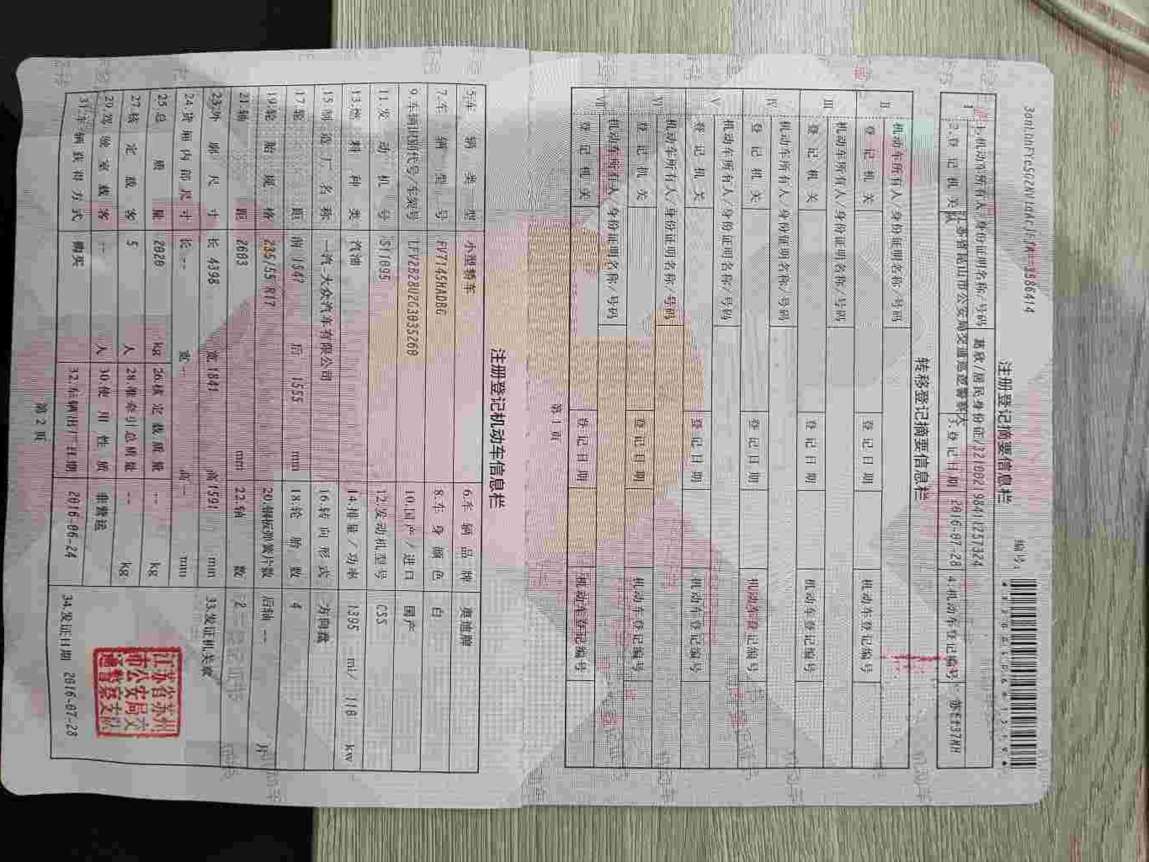 注册登记摘要信息栏
编号:
I
1.机动车所有人/身份证明名称/号码
葛欣/居民身份证/
2.登记机关
江苏省昆山市公安局交通巡逻警察大队
3.登记日期
2016-07-28
4.机动车登记编号
转移登记摘要信息栏
II
机动车所有人/身份证明名称/号码
登记机关
登记日期
机动车登记编号
III
机动车所有人/身份证明名称/号码
登记机关
登记日期
机动车登记编号
IV
机动车所有人/身份证明名称/号码
登记机关
登记日期
机动车登记编号
V
机动车所有人/身份证明名称/号码
登记机关
登记日期
机动车登记编号
VI
机动车所有人/身份证明名称/号码
登记机关
登记日期
机动车登记编号
VII
机动车所有人/身份证明名称/号码
登记机关
登记日期
机动车登记编号
第1页
注册登记机动车信息栏
5.车辆类型 小型轿车 6.车辆品牌 奥迪牌
7.车辆型号 FV7145HADBG 8.车身颜色 白
9.车辆识别代号/车架号 LFV2B28U2G3035260 10.国产/进口 国产
11.发动机号 S11095 12.发动机型号 CSS
13.燃料种类 汽油 14.排量/功率 1395 ml/ 110 kw
15.制造厂名称 一汽-大众汽车有限公司 16.转向形式 方向盘
17.轮距 前 1547 后 1555 mm 18.轮胎数 4
19.轮胎规格 235/55 R17 20.钢板弹簧片数 后轴 -- 片
21.轴距 2603 mm 22.轴数 2
23.外廓尺寸 长 4398 宽 1841 高 1591 mm
24.货厢内部尺寸 长 -- 宽 -- 高 -- mm
25.总质量 2020 kg 26.核定载质量 -- kg
27.核定载客 5 人 28.准牵引总质量 -- kg
29.驾驶室载客 -- 人 30.使用性质 非营运
31.车辆获得方式 购买 32.车辆出厂日期 2016-06-24
33.发证机关章
江苏省苏州
市公安局交
通警察支队
34.发证日期 2016-07-28
第2页